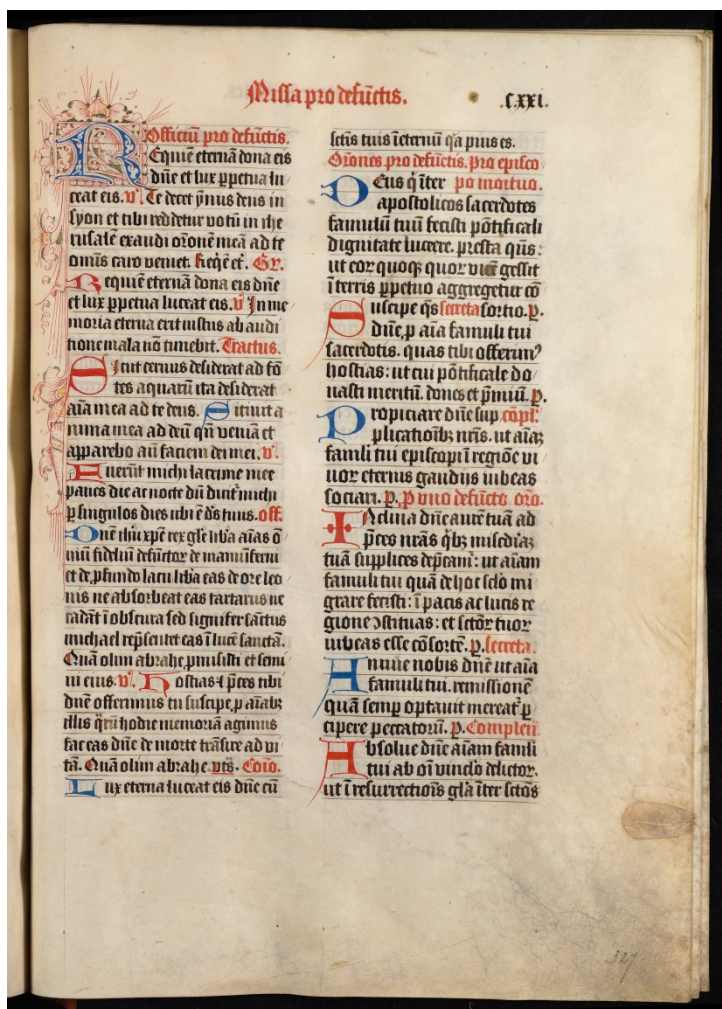 Missa pro defūctis.
.C.xxi.
Officiū pro defūctis.
Requiē eternā dona eis
dn̄e et lux ꝑpetua lu
ceat eis. v̄. Te decet ẏmnus deus in
syon et tibi reddetur votū in ihe
rusalē exaudi or̄onē meā ad te
omīs caro veniet. Reqͥē et̄. Gr̄.
Requiē eternā dona eis dn̄e
et lux ꝑpetua luceat eis. v̄ In me
moria eterna erit iustus ab audi
tione mala nō timebit. Tractus.
Sicut ceruus desiderat ad fō
tes aquarū ita desiderat
aīa mea ad te deus. Sitiuit a
nima mea ad deū qn̄ veniā et
apparebo an̄ faciem dei mei. v̄.
Fuerūt michi lacrime mee
panes die ac nocte dū dicit̄ michi
ꝑ singulos dies ubi ē ds̄ tuus. off.
Domē ihū xpē rex gl̄e lib̄a aīas o
mniū fidelium defūctoꝝ de manu īferni
et de ꝓfundo lacu lib̄a eas de ore leo
nis ne absorbeat eas tartarus ne
cadāt ī obscura sed signifer sāctus
michael rep̄sentet eas ī lucē sanctā.
Quā olim abrahe ꝓmisisti et semi
ni eius. v̄. Hostias ⁊ p̄ces tibi
dn̄e offerimus tu suscipe ꝓ aīabꝫ
illis qͣrū hodie memoriā agimus
fac eas dn̄e de morte trāsire ad vi
tā. Quā olim abrahe. vts̄. Cōio.
Lux eterna luceat eis dn̄e cū
sctīs tuis ī eternū qͥa pius es.
Or̄ones pro defūctis. Pro episco
Deus qͥ īter po mortuo.
apostolicos sacerdotes
famulū tuū fecisti pōtificali
dignitate lucere. presta qs̄:
ut eoꝝ quoqꝫ quoꝝ vicē gessit
ī terris ꝑpetuo aggregetur cō
Suscipe qs̄ secreta sortio. ꝑ.
dn̄e ꝓ aīa famuli tui
sacerdotis. quas tibi offerimꝰ
hostias: ut cui pōtificale do
nasti meritū. dones et p̄miū. ꝑ.
Propiciare dn̄e sup cōpl̄.
plicatiōibꝫ nr̄is. ut aīaꝫ
famli tui episcopi ī regiōe vi
uoꝝ eternis gaudijs iubeas
sociari. ꝑ. P̄ vno defūcto. or̄o.
Inclina dn̄e aurē tuā ad
p̄ces nr̄as qͥbꝫ misc̄diāꝫ
tuā supplices dep̄camᷣ: ut aīam
famuli tui quā de hoc sclo mi
grare fecisti: ī pacis ac lucis re
gione ↄstituas: et sctōꝝ tuoꝝ
iubeas esse cōsortē. ꝑ. secreta.
Annue nobis dn̄e ut aīa
famuli tui. remissionē
quā semꝑ optauit mereat̄ ꝑ
cipere peccatorū. ꝑ. Complen̄.
Absolue dn̄e aīam famli
tui ab oī vinclo delictoꝝ.
ut ī resurrectiōis gl̄a īter sctōs
327